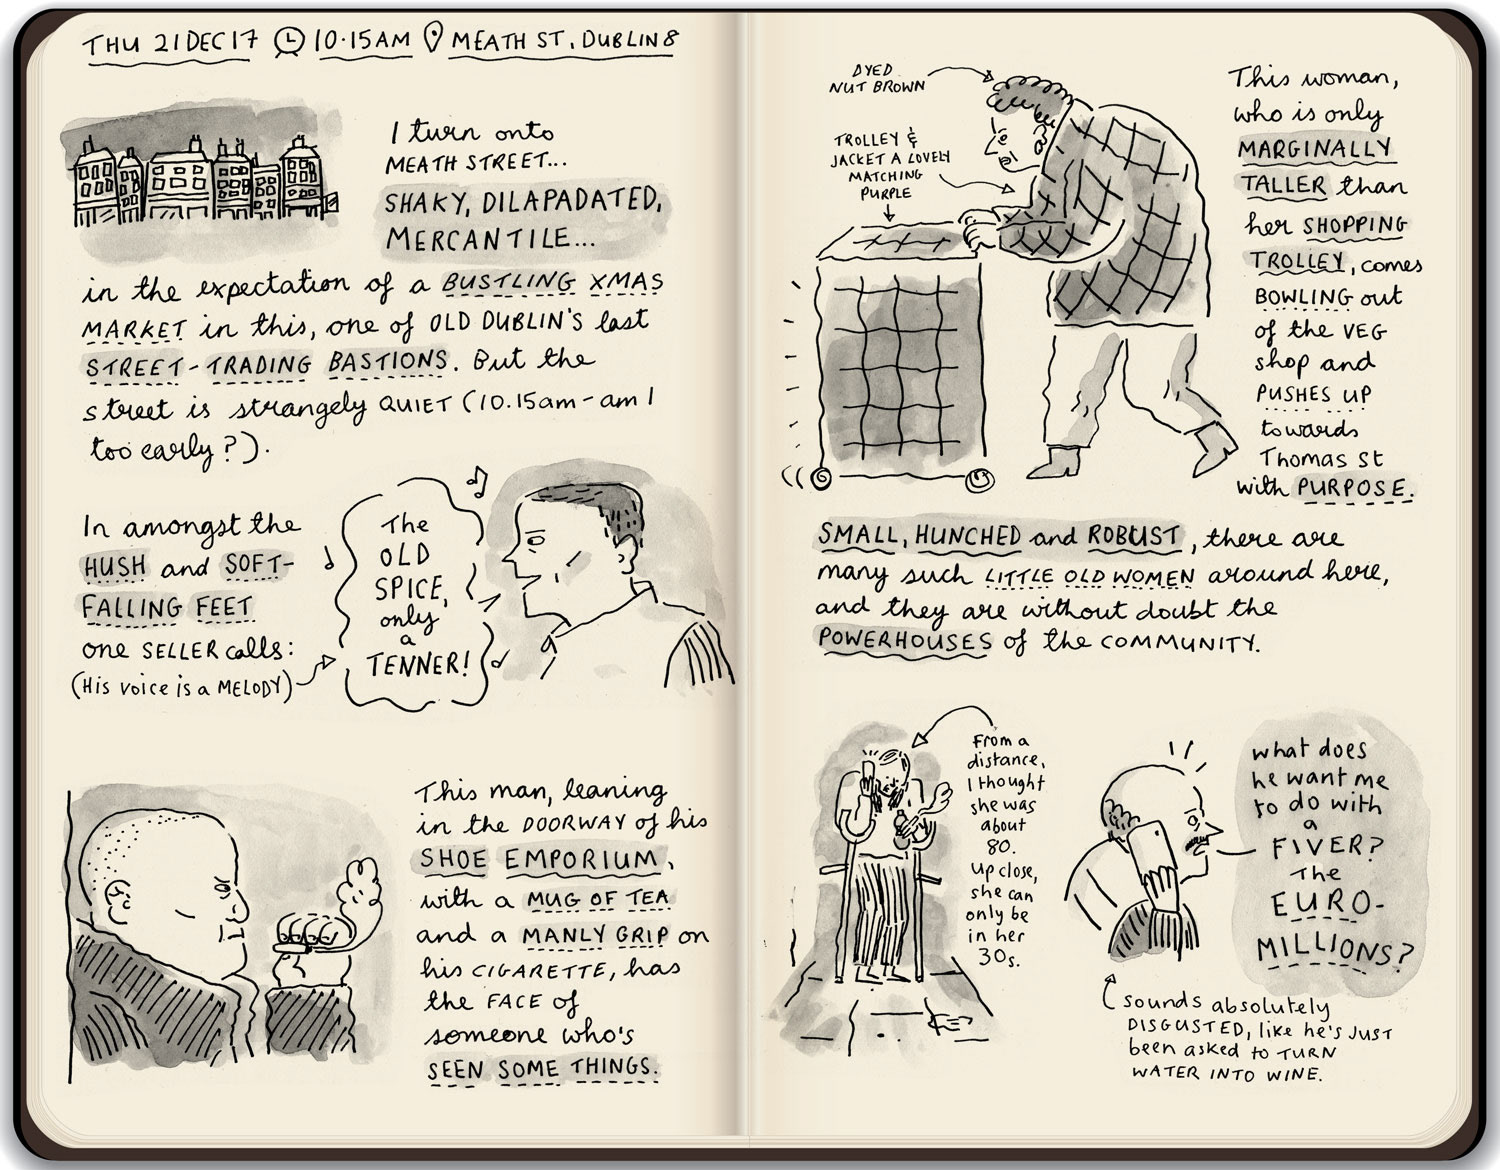 THU 21 DEC 17 10·15AM MEATH ST, DUBLIN 8
I turn onto
MEATH STREET...
SHAKY, DILAPADATED,
MERCANTILE...
in the expectation of a BUSTLING XMAS
MARKET in this, one of OLD DUBLIN'S last
STREET-TRADING BASTIONS. But the
street is strangely QUIET (10.15am-am I
too early?).
In amongst the
HUSH and SOFT-
FALLING FEET
one SELLER calls:
(His voice is a MELODY)
The
OLD
SPICE,
only
a
TENNER!
This man, leaning
in the DOORWAY of his
SHOE EMPORIUM,
with a MUG OF TEA
and a MANLY GRIP on
his CIGARETTE, has
the FACE of
someone who's
SEEN SOME THINGS.
DYED
NUT BROWN
TROLLEY &
JACKET A LOVELY
MATCHING
PURPLE
This woman,
who is only
MARGINALLY
TALLER than
her SHOPPING
TROLLEY, comes
BOWLING out
of the VEG
shop and
PUSHES UP
towards
Thomas St
with PURPOSE.
SMALL, HUNCHED and ROBUST, there are
many such LITTLE OLD WOMEN around here,
and they are without doubt the
POWERHOUSES of the COMMUNITY.
From a
distance,
I thought
she was
about
80.
Up close,
she can
only be
in her
30s.
What does
he want me
to do with
a
FIVER?
The
EURO-
MILLIONS?
Sounds absolutely
DISGUSTED, like he's JUST
been asked to TURN
WATER INTO WINE.